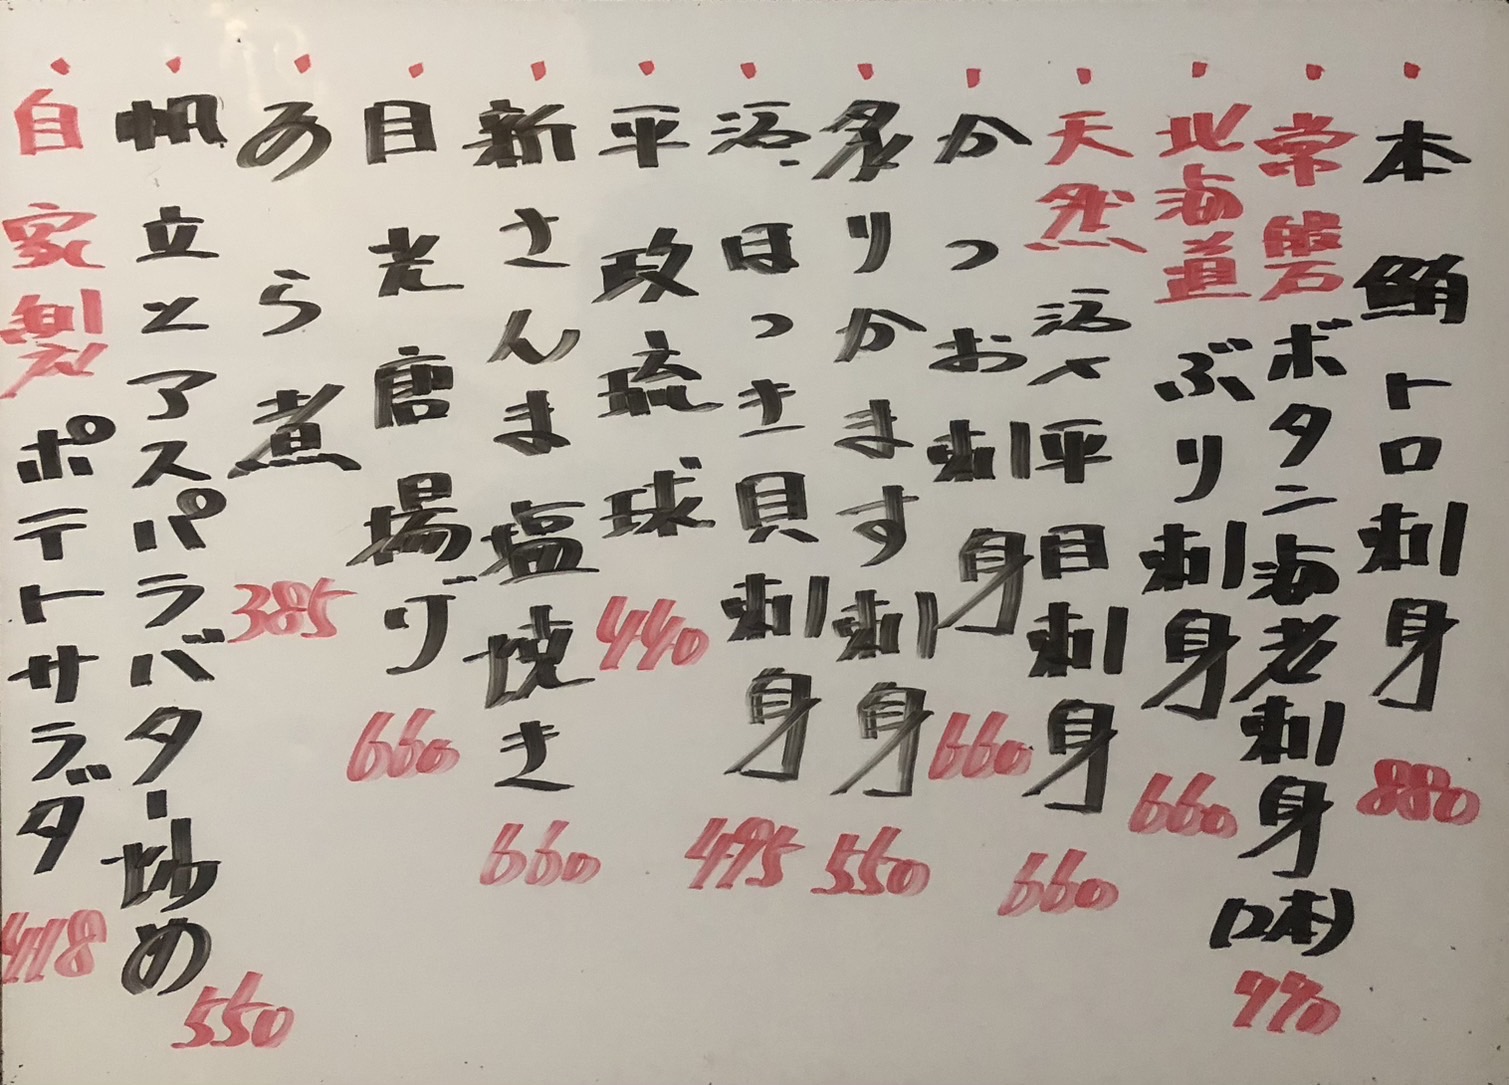 ・本鮪トロ刺身 880
・常磐ボタン海老刺身(2本) 770
・北海道ぶり刺身 660
・天然活〆平目刺身 660
・かつお刺身 660
・炙りかます刺身 550
・活ほっき貝刺身 495
・平政琉球 440
・新さんま塩焼き 660
・目光唐揚げ 660
・あら煮 385
・帆立とアスパラバター炒め 550
・自家製ポテトサラダ 418